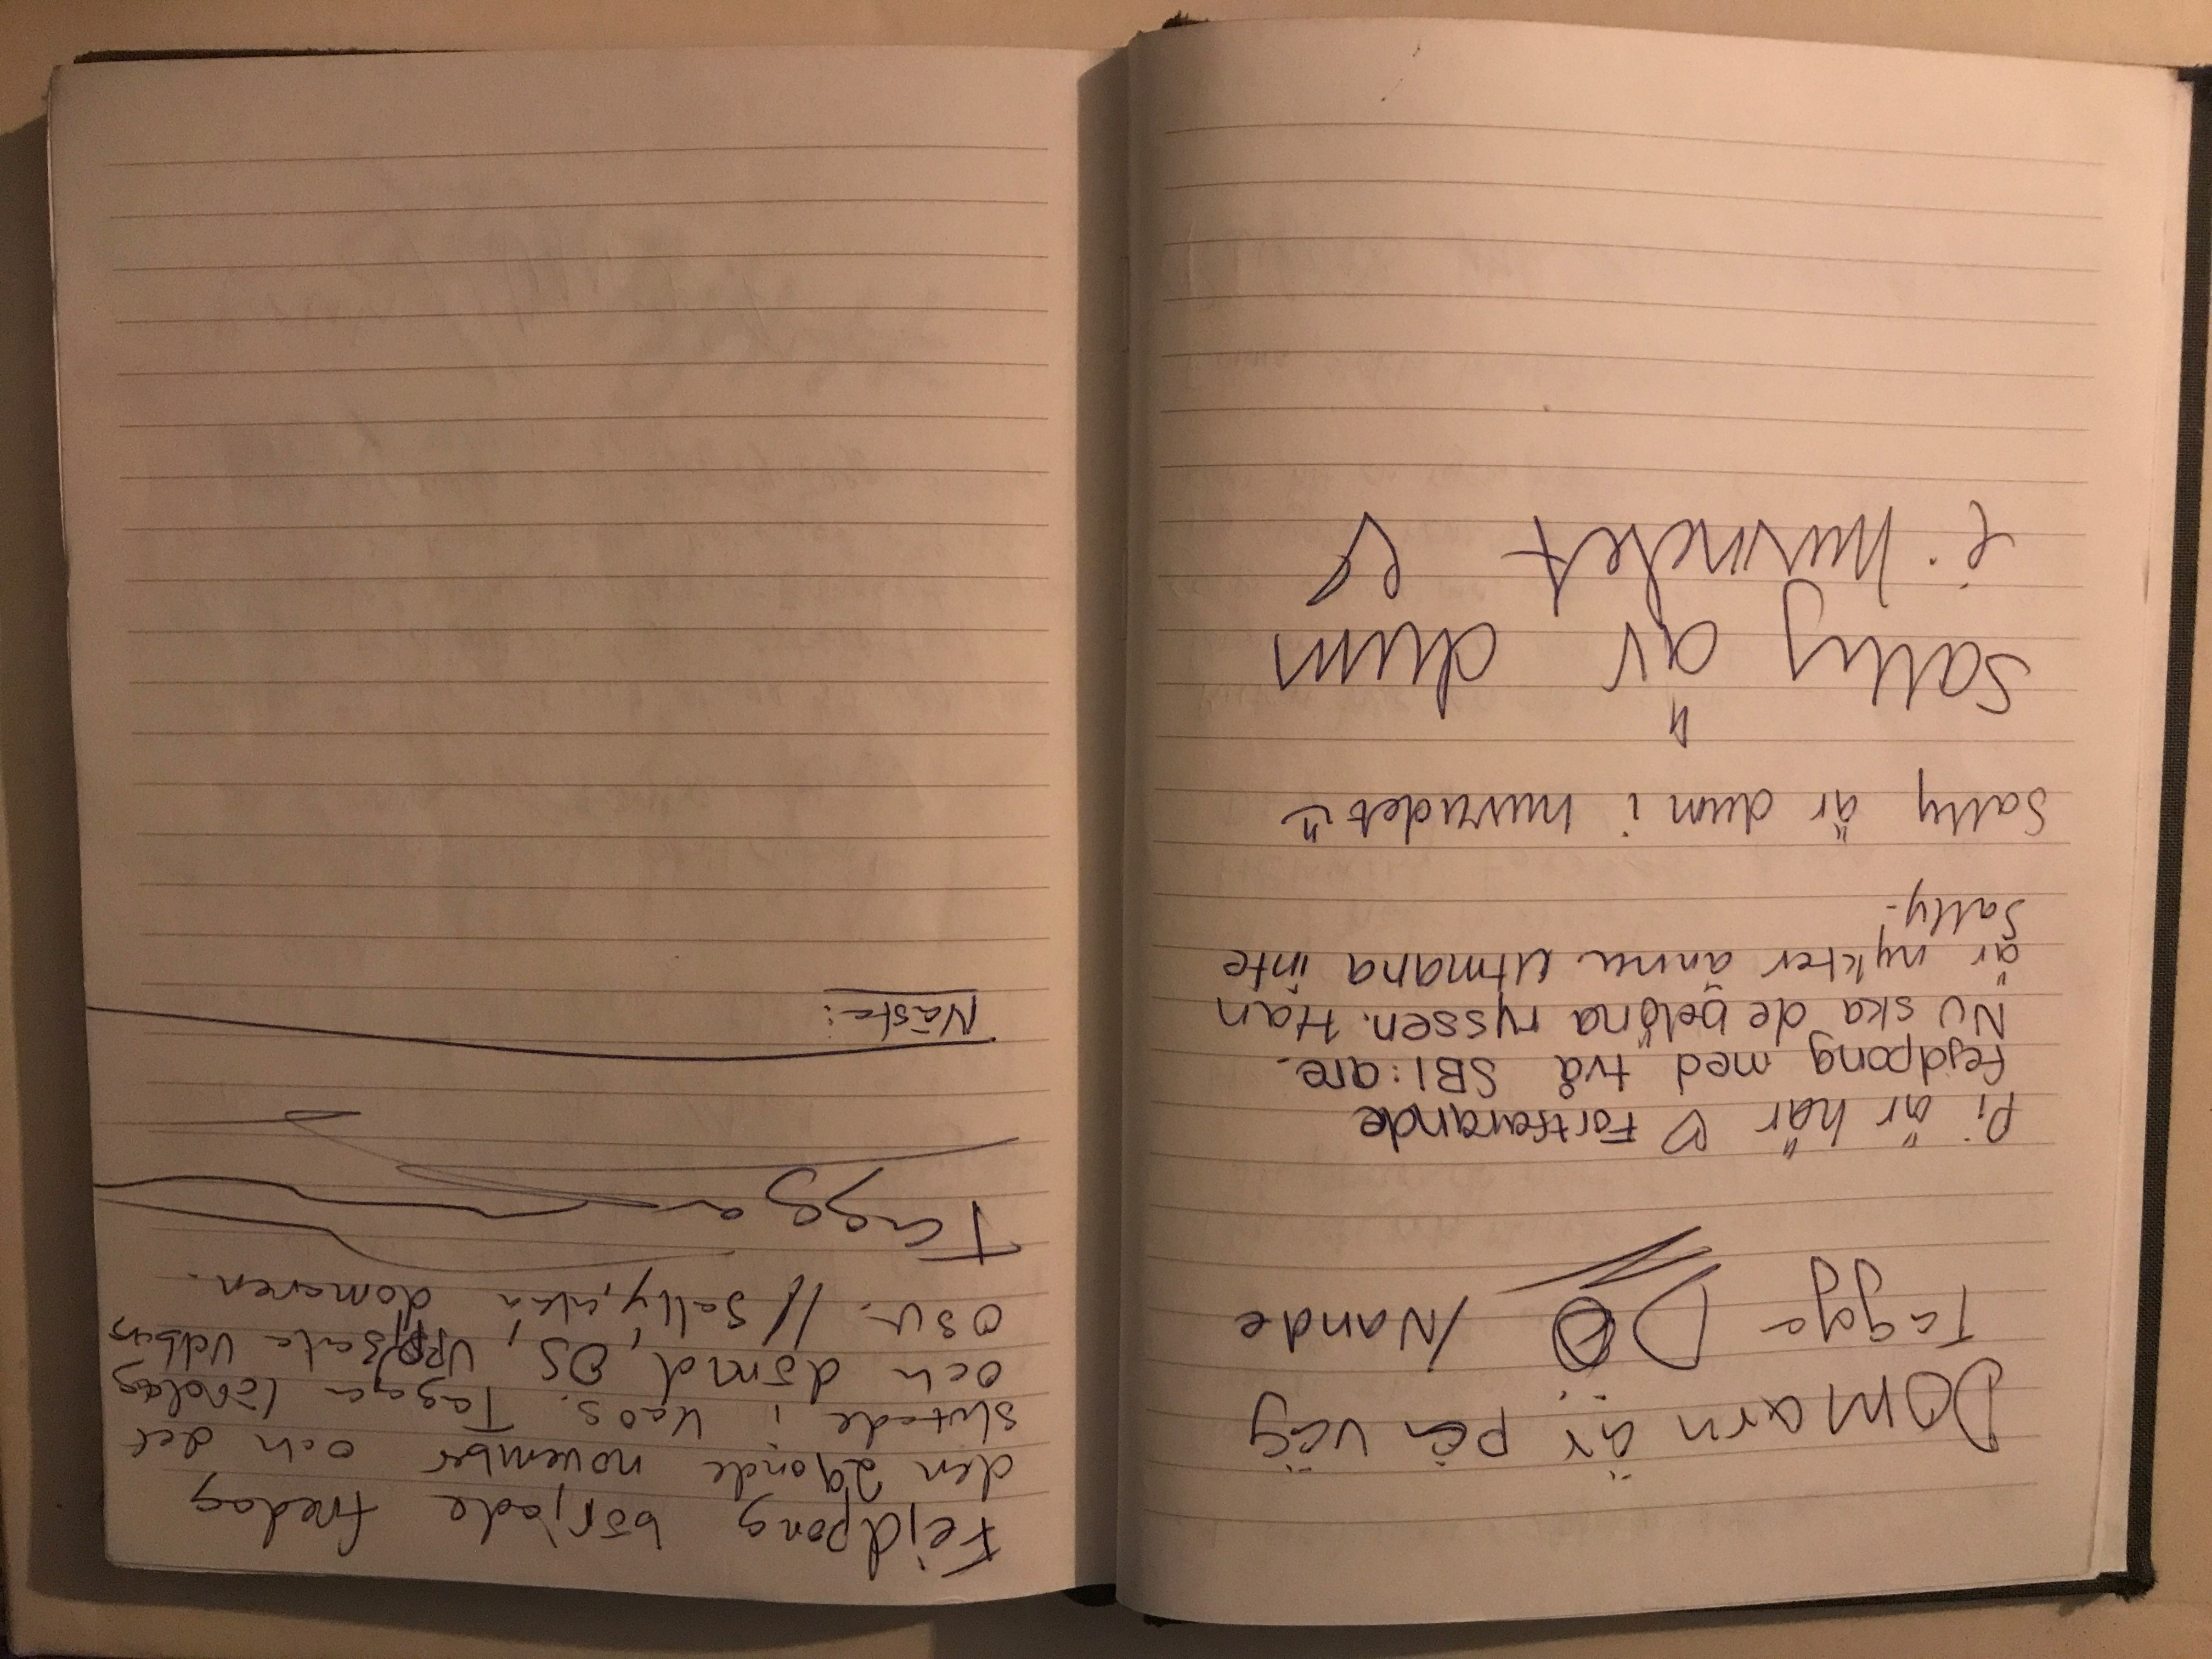 Domarn är på väg
Tagga DÖ /Nande
Pi är här ♡ Fortfarande
fejdpong med två SBI:are.
Nu ska de belöna ryssen. Han
är nykter ännu. Utmana inte
Sally.
Sally är dum i huvudet ü
Sally är dum
i huvudet
Fejdpong började fredag
den 29onde november och det
slutade i kaos. Tagga lördag
och dömd, ÖS, Uppsala
osv. // Sally, aka domaren.
Tagga
Nästa: